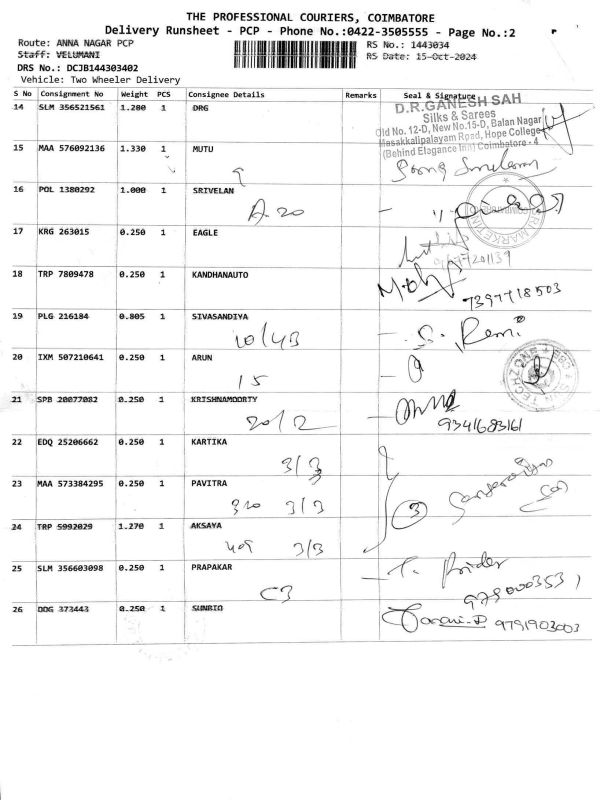 THE PROFESSIONAL COURIERS, COIMBATORE
Delivery Runsheet - PCP - Phone No.:0422-3505555 - Page No.:2
Route: ANNA NAGAR PCP RS No.: 1443034
Staff: VELUMANI RS Date: 15-Oct-2024
DRS No.: DCJB144303402
Vehicle: Two Wheeler Delivery
S No Consignment No Weight PCS Consignee Details Remarks Seal & Signature
14 SLM 356521561 1.280 1 DRG
D.R.GANESH SAH
Silks & Sarees
Old No. 12-D, New No.15-D, Balan Nagar
Masakkalipalayam Road, Hope College
(Behind Elagance Inn) Coimbatore - 4
15 MAA 576092136 1.330 1 MUTU
9
16 POL 1380292 1.000 1 SRIVELAN
A-20
17 KRG 263015 0.250 1 EAGLE
18 TRP 7809478 0.250 1 KANDHANAUTO
7397718503
19 PLG 216184 0.805 1 SIVASANDIYA
10/43
20 IXM 507210641 0.250 1 ARUN
15
21 SPB 20077082 0.250 1 KRISHNAMOORTY
20/2 9341683161
22 EDQ 25206662 0.250 1 KARTIKA
3/3
23 MAA 573384295 0.250 1 PAVITRA
310 3/3 3
24 TRP 5992029 1.270 1 AKSAYA
409 3/3
25 SLM 356603098 0.250 1 PRAPAKAR
C3
26 DDG 373443 0.250 1 SUNBIO
9791903003